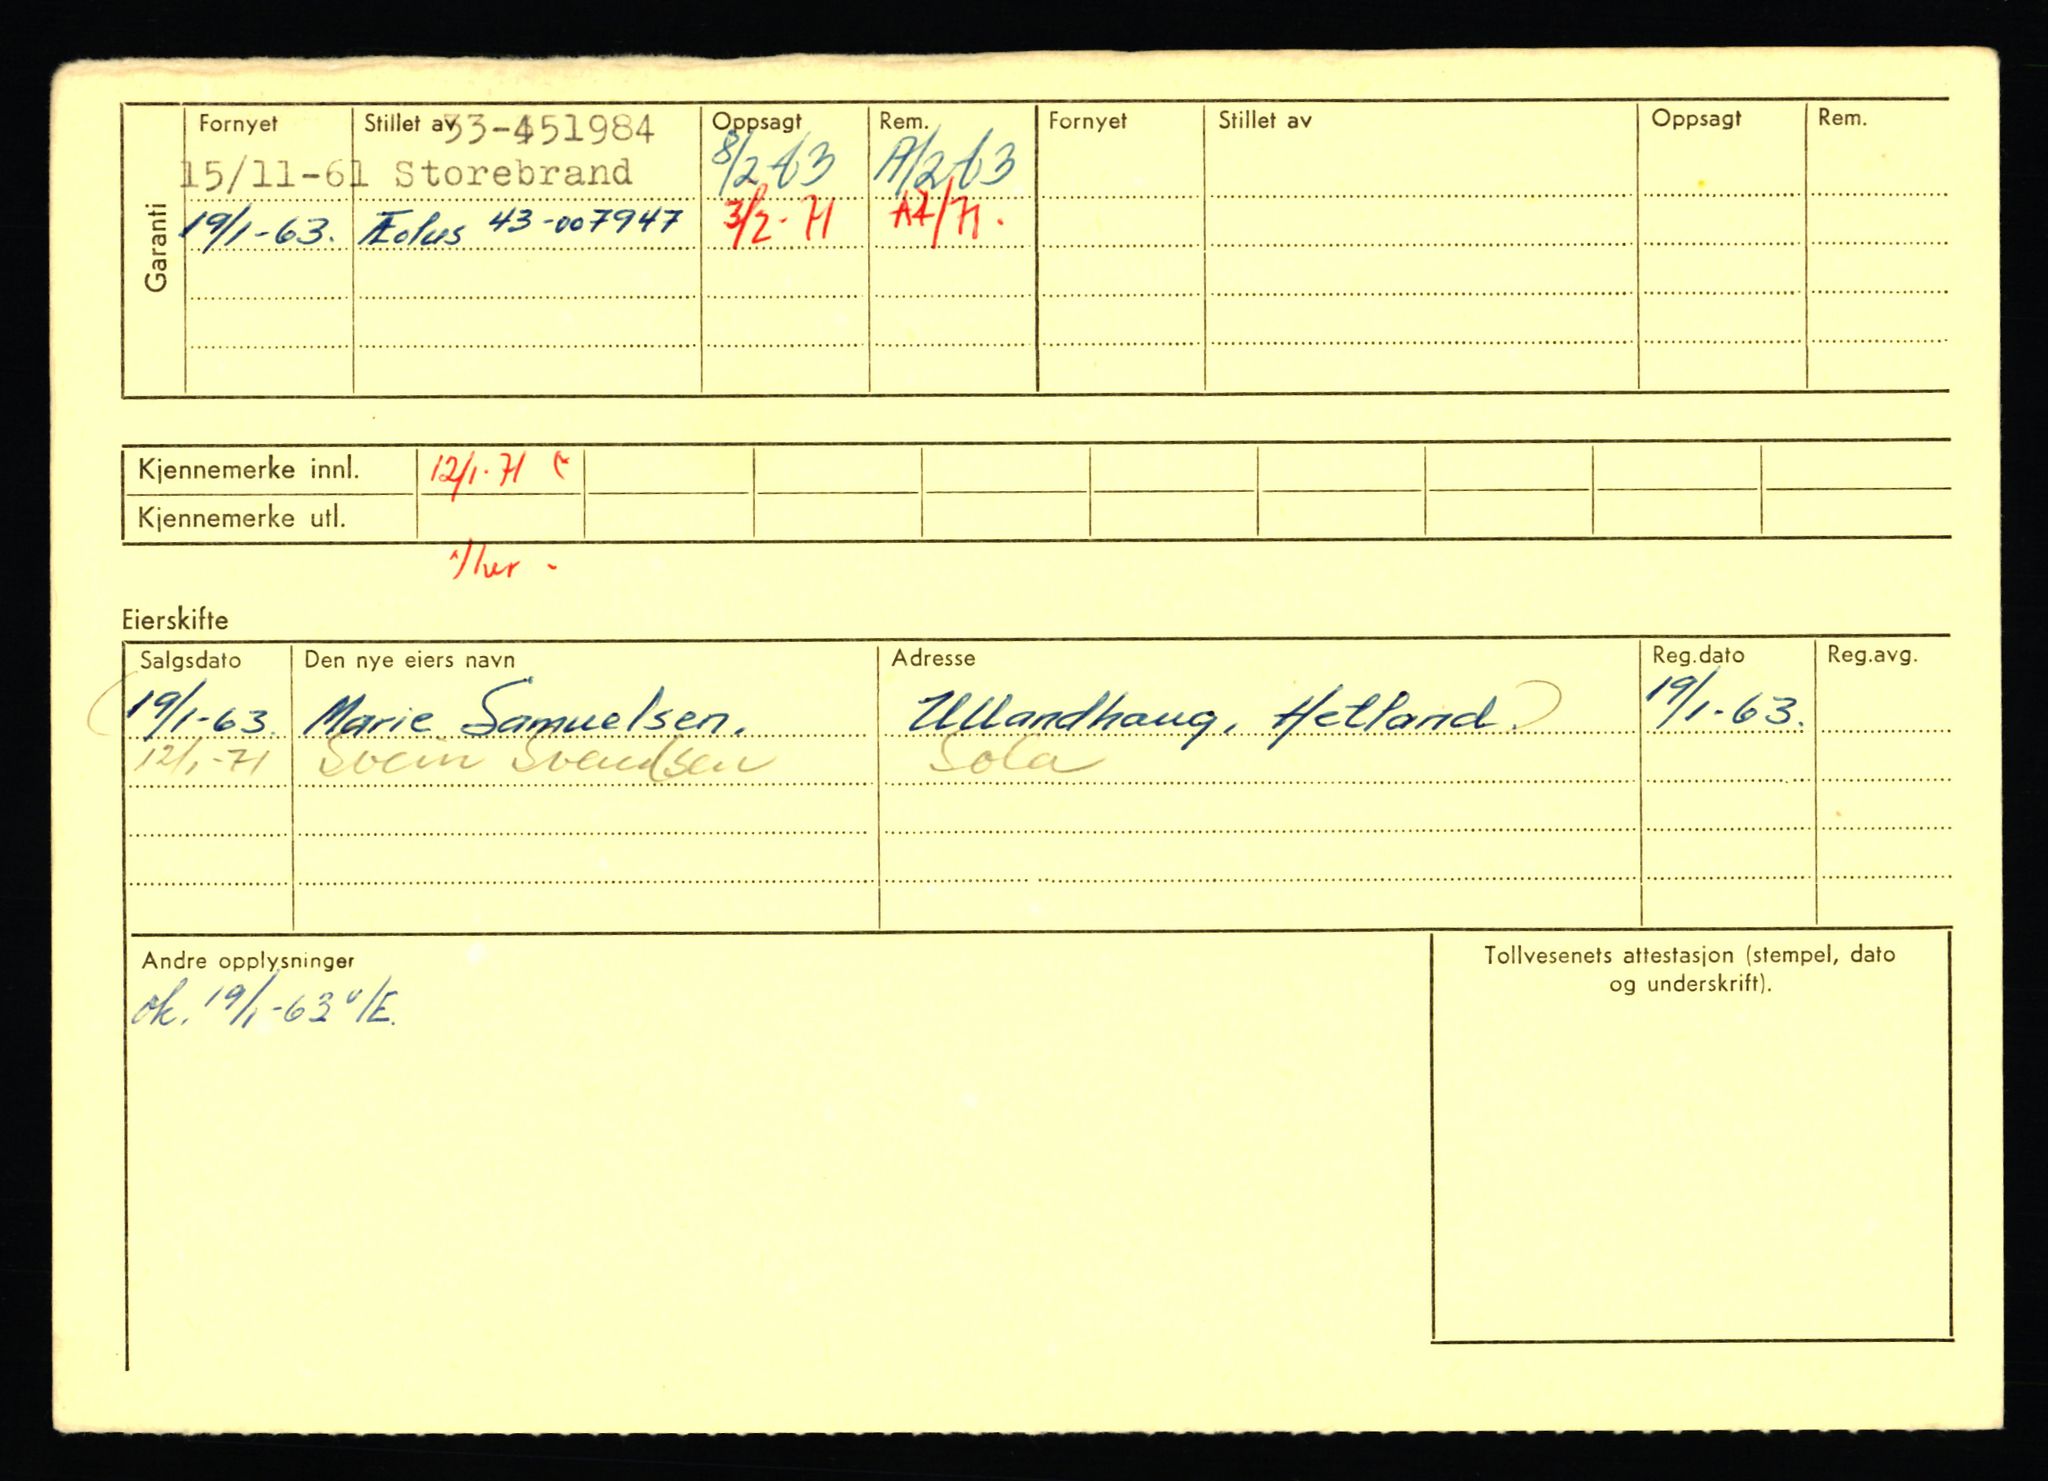 Garanti
Fornyet Stillet av Oppsagt Rem. Fornyet Stillet av Oppsagt Rem.
33-451984
15/11-61 Storebrand 8/2-63 A/2-63
19/1-63. Æolus 43-007947 3/2-71
Kjennemerke innl. 12/1-71
Kjennemerke utl.
Eierskifte
Salgsdato Den nye eiers navn Adresse Reg.dato Reg.avg.
19/1-63. Marie Samuelsen. Ullandhaug, Hetland. 19/1-63.
12/1-71 Svein Svendsen Sola
Andre opplysninger
ok. 19/1-63
Tollvesenets attestasjon (stempel, dato
og underskrift).